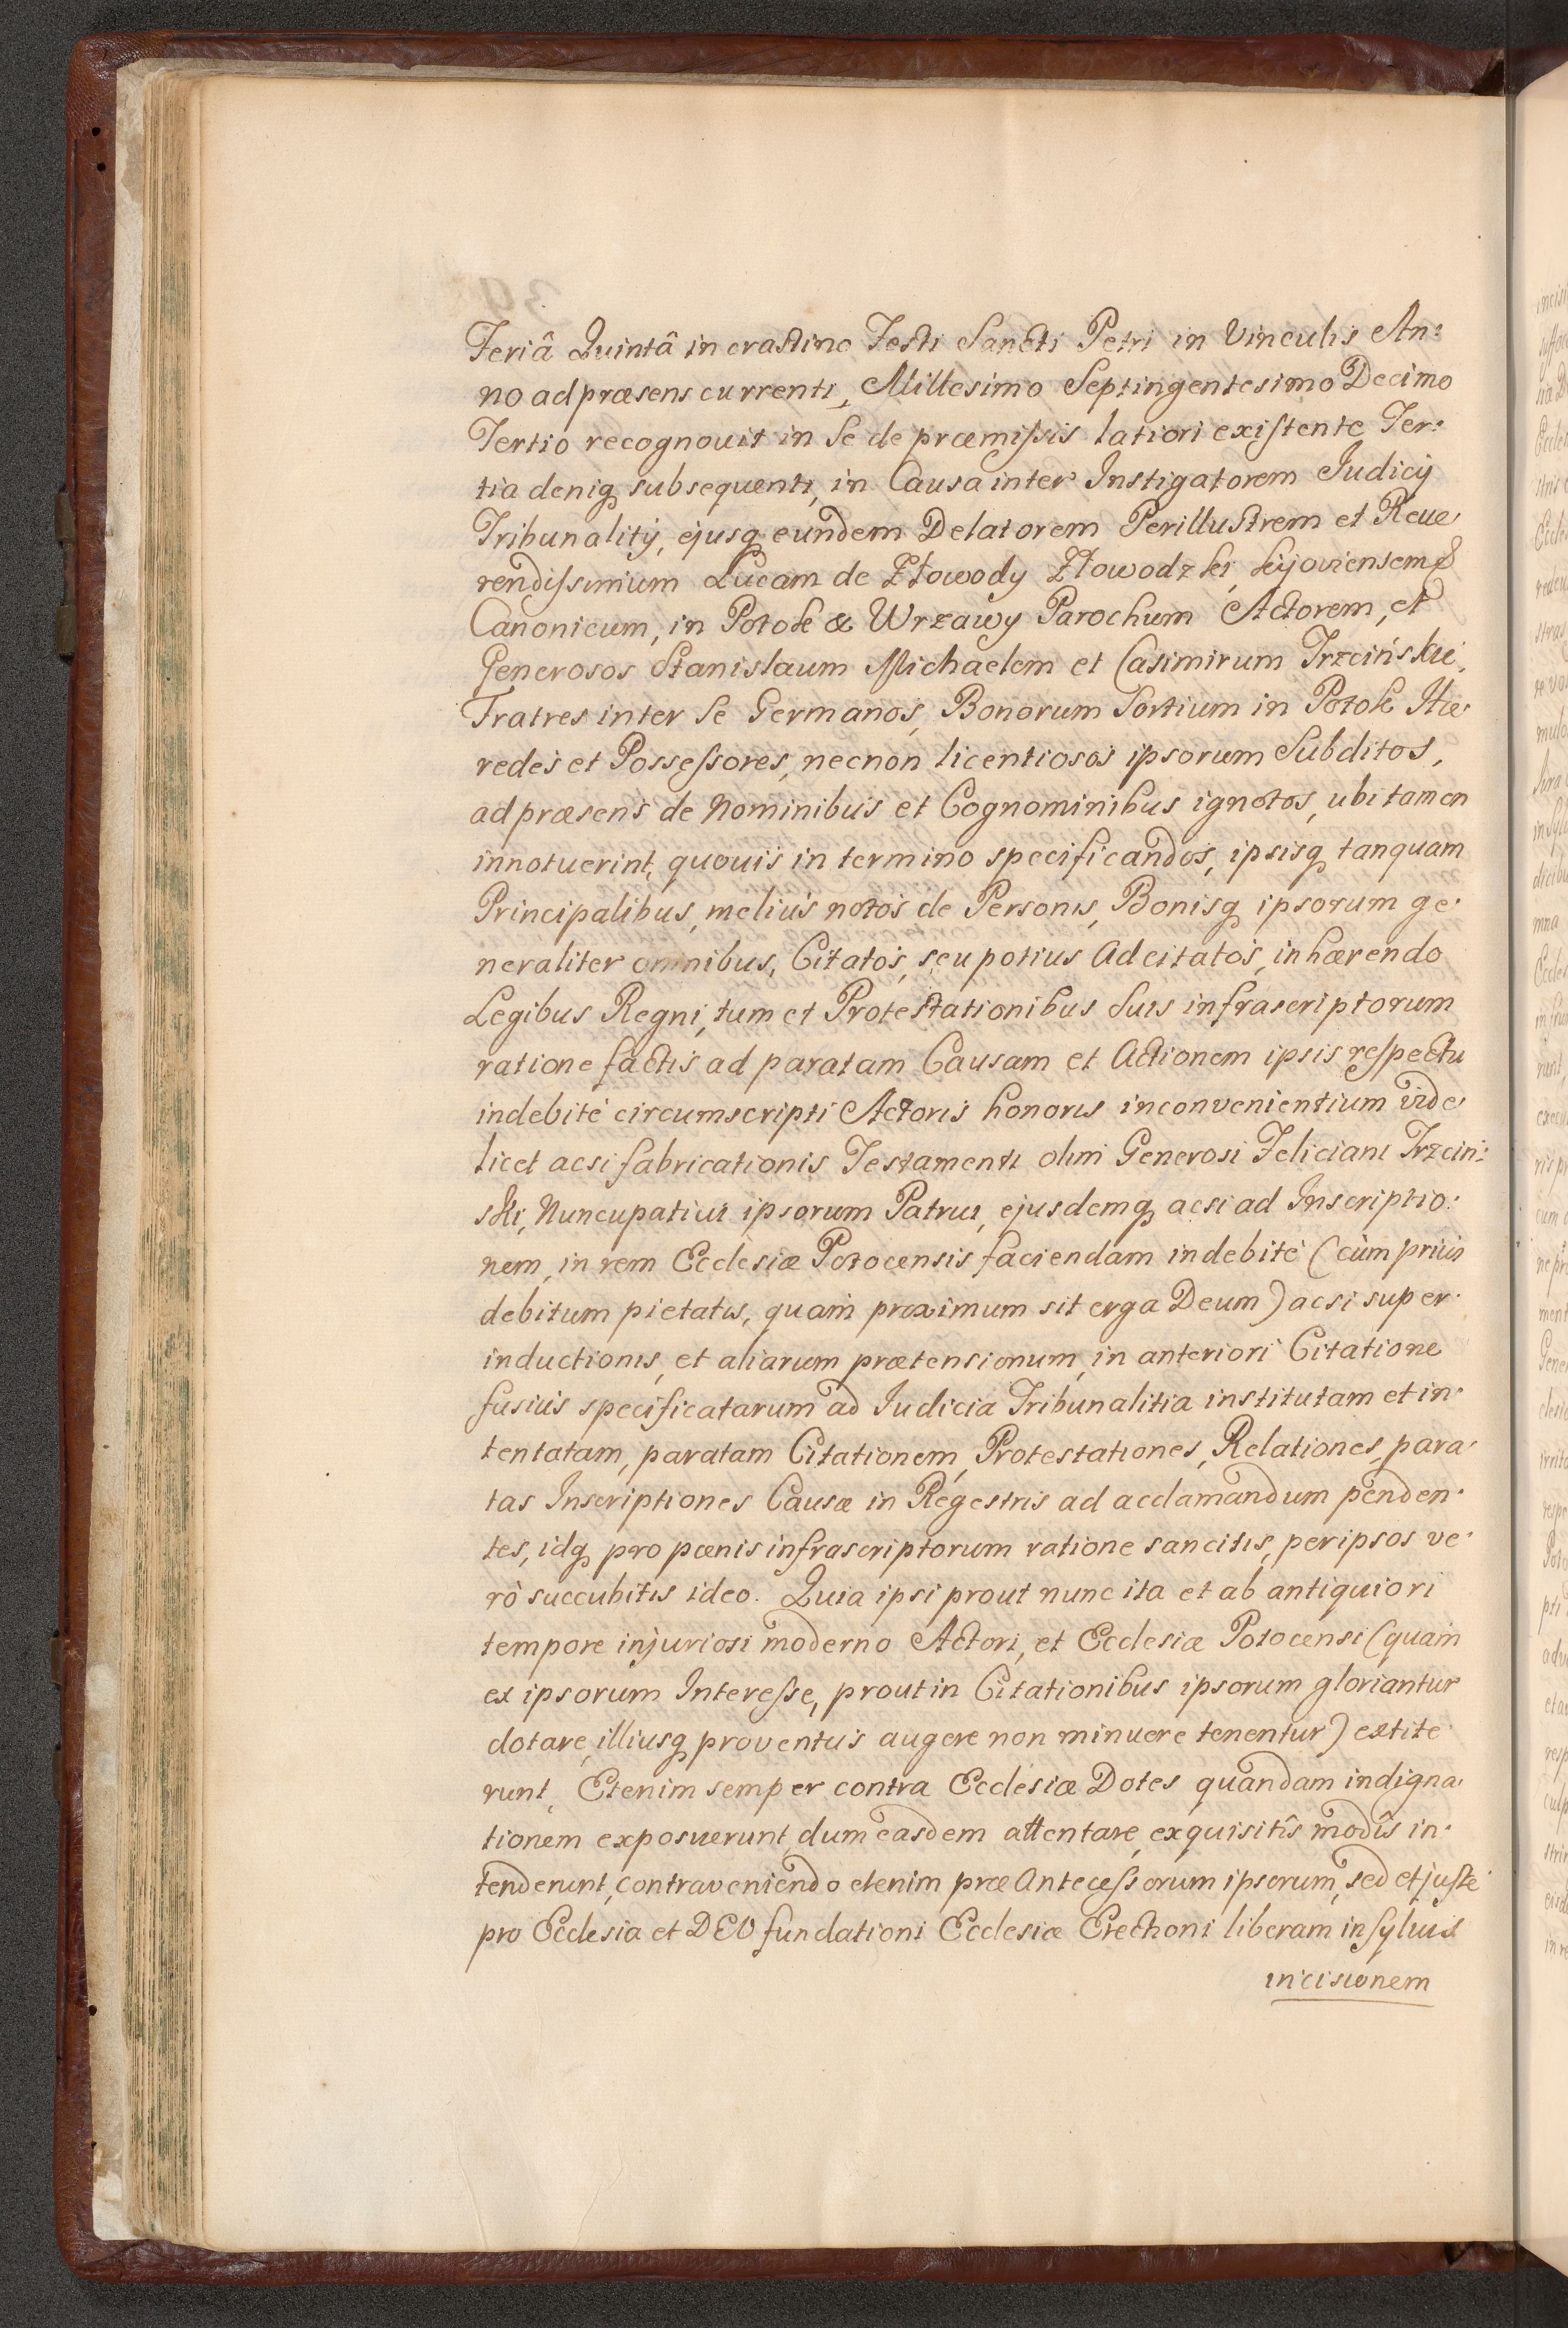 Feriâ Quintâ in crastino Festi Sancti Petri in Vinculis An:
no ad præsens currenti, Millesimo Septingentesimo Decimo
Tertio recognouit in Se de præmissis latiori existente Ter:
tia deniq subsequenti, in Causa inter Instigatorem Judicij
Tribunalitij, ejusq eundem Delatorem Perillustrem et Reue
rendissimium Lucam de Złowody Złowodzki, Kijoviensem
Canonicum, in Potok & Wrzawy Parochum Actorem, et
Generosos Stanislaum Michaelem et Casimirum Trzcińskie,
Fratres inter Se Germanos, Bonorum Sortium in Potok Hæ
redes et Possessores, necnon licentiosos ipsorum Subditos,
ad præsens de Nominibus et Cognominibus ignotos, ubi tamen
innotuerint, quouis in termino specificandos, ipsisq tanquam
Principalibus, meliùs notos de Personis, Bonisq ipsorum ge
neraliter omnibus, Citatos, seu potius Adcitatos, inhærendo
Legibus Regni, tum et Protestationibus Suis infrascriptorum
ratione factis ad paratam Causam et Actionem ipsis respectu
indebitè circumscripti Actoris honoris inconvenientium vide
licet acsi fabricationis Testamenti olim Generosi Feliciani Trzcin:
ski, Nuncupatiui ipsorum Patrui, ejusdemq acsi ad Inscriptio:
nem, in rem Ecclesiæ Potocensis faciendam indebitè (cùm priùs
debitum pietatis, quàm proximum sit erga Deum) acsi super
inductionis, et aliarum prætensionum, in anteriori Citatione
fusiùs specificatarum ad Judicia Tribunalitia institutam et in
tentatam, paratam Citationem, Protestationes, Relationes, para
tas Inscriptiones Causæ in Regestris ad acclamandum penden
tes, idq pro pœnis infrascriptorum ratione sancitis, per ipsos ve
rò succubitis ideo. Quia ipsi prout nunc ita et ab antiquiori
tempore injuriosi moderno Actori, et Ecclesiæ Potocensi (quam
ex ipsorum Interesse, prout in Citationibus ipsorum gloriantur
dotare, illiusq proventus augere non minuere tenentur) extite
runt, Etenim semper contra Ecclesiæ Dotes quandam indigna
tionem exposuerunt, dum easdem attentare, exquisitîs modîs in
tenderunt, contraveniendo etenim præ Antecessorum ipsorum, sed et juste
pro Ecclesia et DEO fundationi Ecclesiæ Erectioni liberam in syluis
incisionem